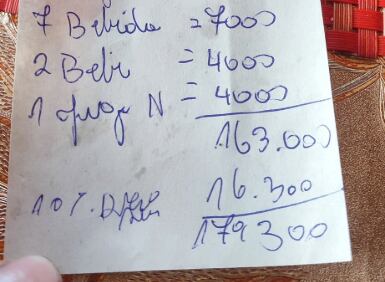 7 Bebida = 7000
2 Bebi = 4000
1 N = 4000
163.000
10%. 16.300
179300